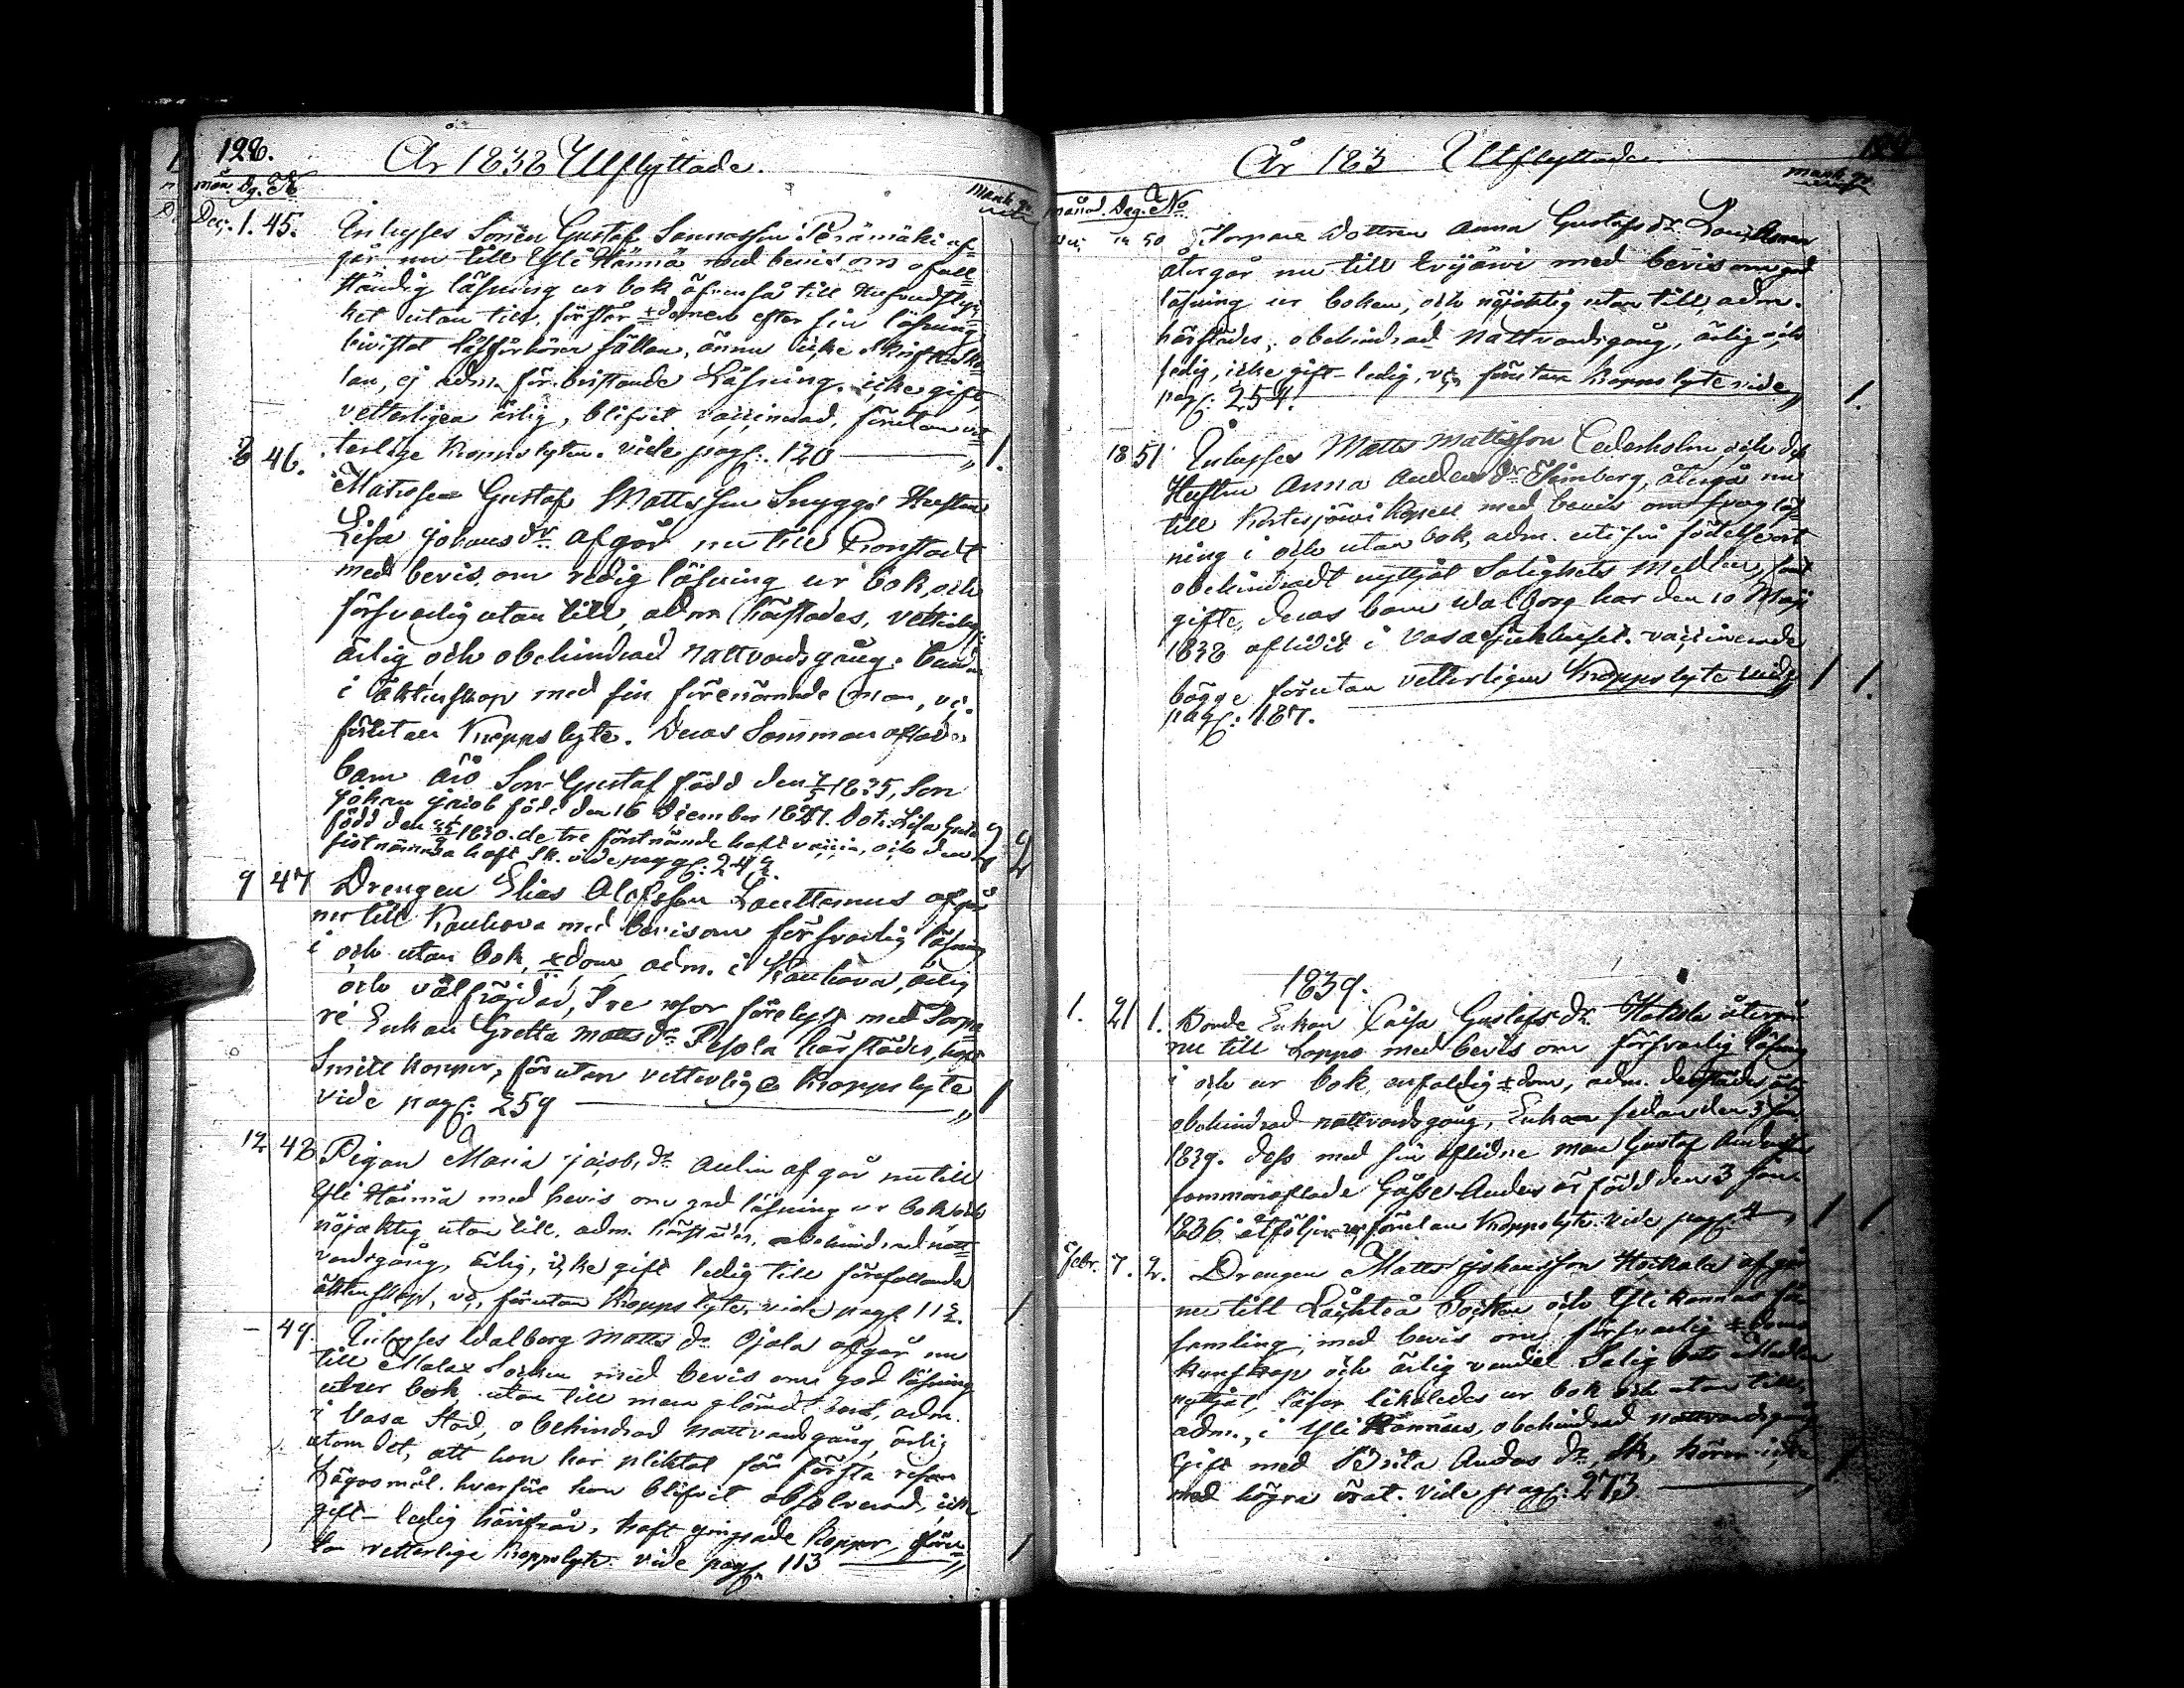 128.
År 1838 Utflyttade.
mån. Dg. No
mank. qv.
Dec. 1. 45. Inhyses Sonen Gustaf Sannasson Perämäki af-
går nu till Yli Härmä med bevis om ofull-
ständig läsning ur bok äfvenså till
het utan till, förstår xdomen efter sin läsning
bevistat läsförhören sällan, ännu icke Skriftesko-
lan, ej adm. för bristande Läsning, icke gift,
vetterligen ärlig, blifvit vaccinerad, förutan vet-
terlige kroppslyten. vide pag: 120 1.
8 46. Matrosen Gustaf Mattsson Snyggs Hustru
Lisa Johansdr. afgår nu till Cronstadt
med bevis om redig läsning ur bok, och
försvarlig utan till, adm. härstädes,
ärlig och obehindrad nattvardsgång,
i äktenskap med sin förenämnde man, vc.
förutan kroppslyte. Deras Samman aflade
barn äro Son Gustaf född den 1835, Son
Johan Jacob född den 16 December Dotr. Lisa Greta
född den 1830. de tre förstnämde haft vaccin, och den
sistnämnda haft sk. vide pag: 242. 2 2
9 47 Drengen Elias Olofsson Lauttamus afgår
nu till Kauhava med bevis om försvarlig läsning
i och utan bok, xdom adm. i Kauhava, ärlig
och välfrägdad, Tre resor förelyst med Torpa-
re Enkan Gretta Mattsdr. Pesola härstädes, haft
Smitt koppor, förutan vetterlige kroppslyte
vide pag: 259 1
12 48 Pigan Maria Jacobsdr. Aulin afgår nu till
Yli Härmä med bevis om god läsning ur bok, och
nöjaktig utan till, adm. härstädes, obehindrad natt-
vardsgång, ärlig, icke gift ledig till förefallande
äktenskap, vc, förutan kroppslyte, vide pag. 112. 1
— 49. Inhyses Walborg Mattsdr. Ojala afgår nu
till Malax Socken med bevis om god läsning
utur bok utan till men glömdt bort, adm.
i Vasa Stad, obehindrad nattvardsgång, ärlig
utom det, att hon har pliktat för första resan
Lägersmål, hvarföre hon blifvit absolverad, icke
gift - ledig härifrån, haft gimpade koppor, föru-
tan vetterlige kroppslyte. vide pag. 113 1
År 183 Utflyttade.
mank. qv.
Månad. Dag. No
50 Torpare Dottren Anna Gustafsdr.
återgår nu till Evijärvi med bevis om god
läsning ur boken, och nöjaktig utan till, adm.
härstädes, obehindrad nattvardsgång, ärlig och
fredig, icke gift - ledig, vc, förutan kroppslyte vide
pag: 254. 1.
18 51 Inhyses Matts Mattsson Cederholm och dess
Hustru Anna Andersdr. Stenberg, återgå nu
till Kortesjärvi Kapell med bevis om svag läs-
ning i och utan bok, adm. uti sin födelseort
obehindradt nyttjat Salighets medlen, samt
gifte, deras barn Walborg har den 10 Maji
1838 aflidit i Vasa Sjukhuset. vaccinerade
bägge förutan vetterligen kroppslyte vide 1 1.
pag: 187.
1839.
1. 21 1. Bonde Enkan Caisa Gustafsdr. Hakala återgår
nu till Lappo med bevis om försvarlig läsning
i och ur bok, enfaldig xdom, adm. derstädes, ärlig
obehindrad nattvardsgång, Enka sedan den 3
1839. dess med sin aflidne man Gustaf Andersson
sammanaflade Gosse Anders är född den 3
1836 åtföljer förutan kroppslyte. Vide pag: 1 1
Febr. 7. 2. Drengen Matts Johansson Heikala afgår
nu till Låchteå Socken och Ylikannus för-
samling, med bevis om försvarlig xdoms
kunskap och ärlig vandel. Salighets Medlen
nyttjat, läser likaledes ur bok och utan till,
adm., i Yli Kannus, obehindrad nattvardsgång
Gift med Brita Andersdr., sk., hörer icke
med högra örat. Vide pag: 273 1.